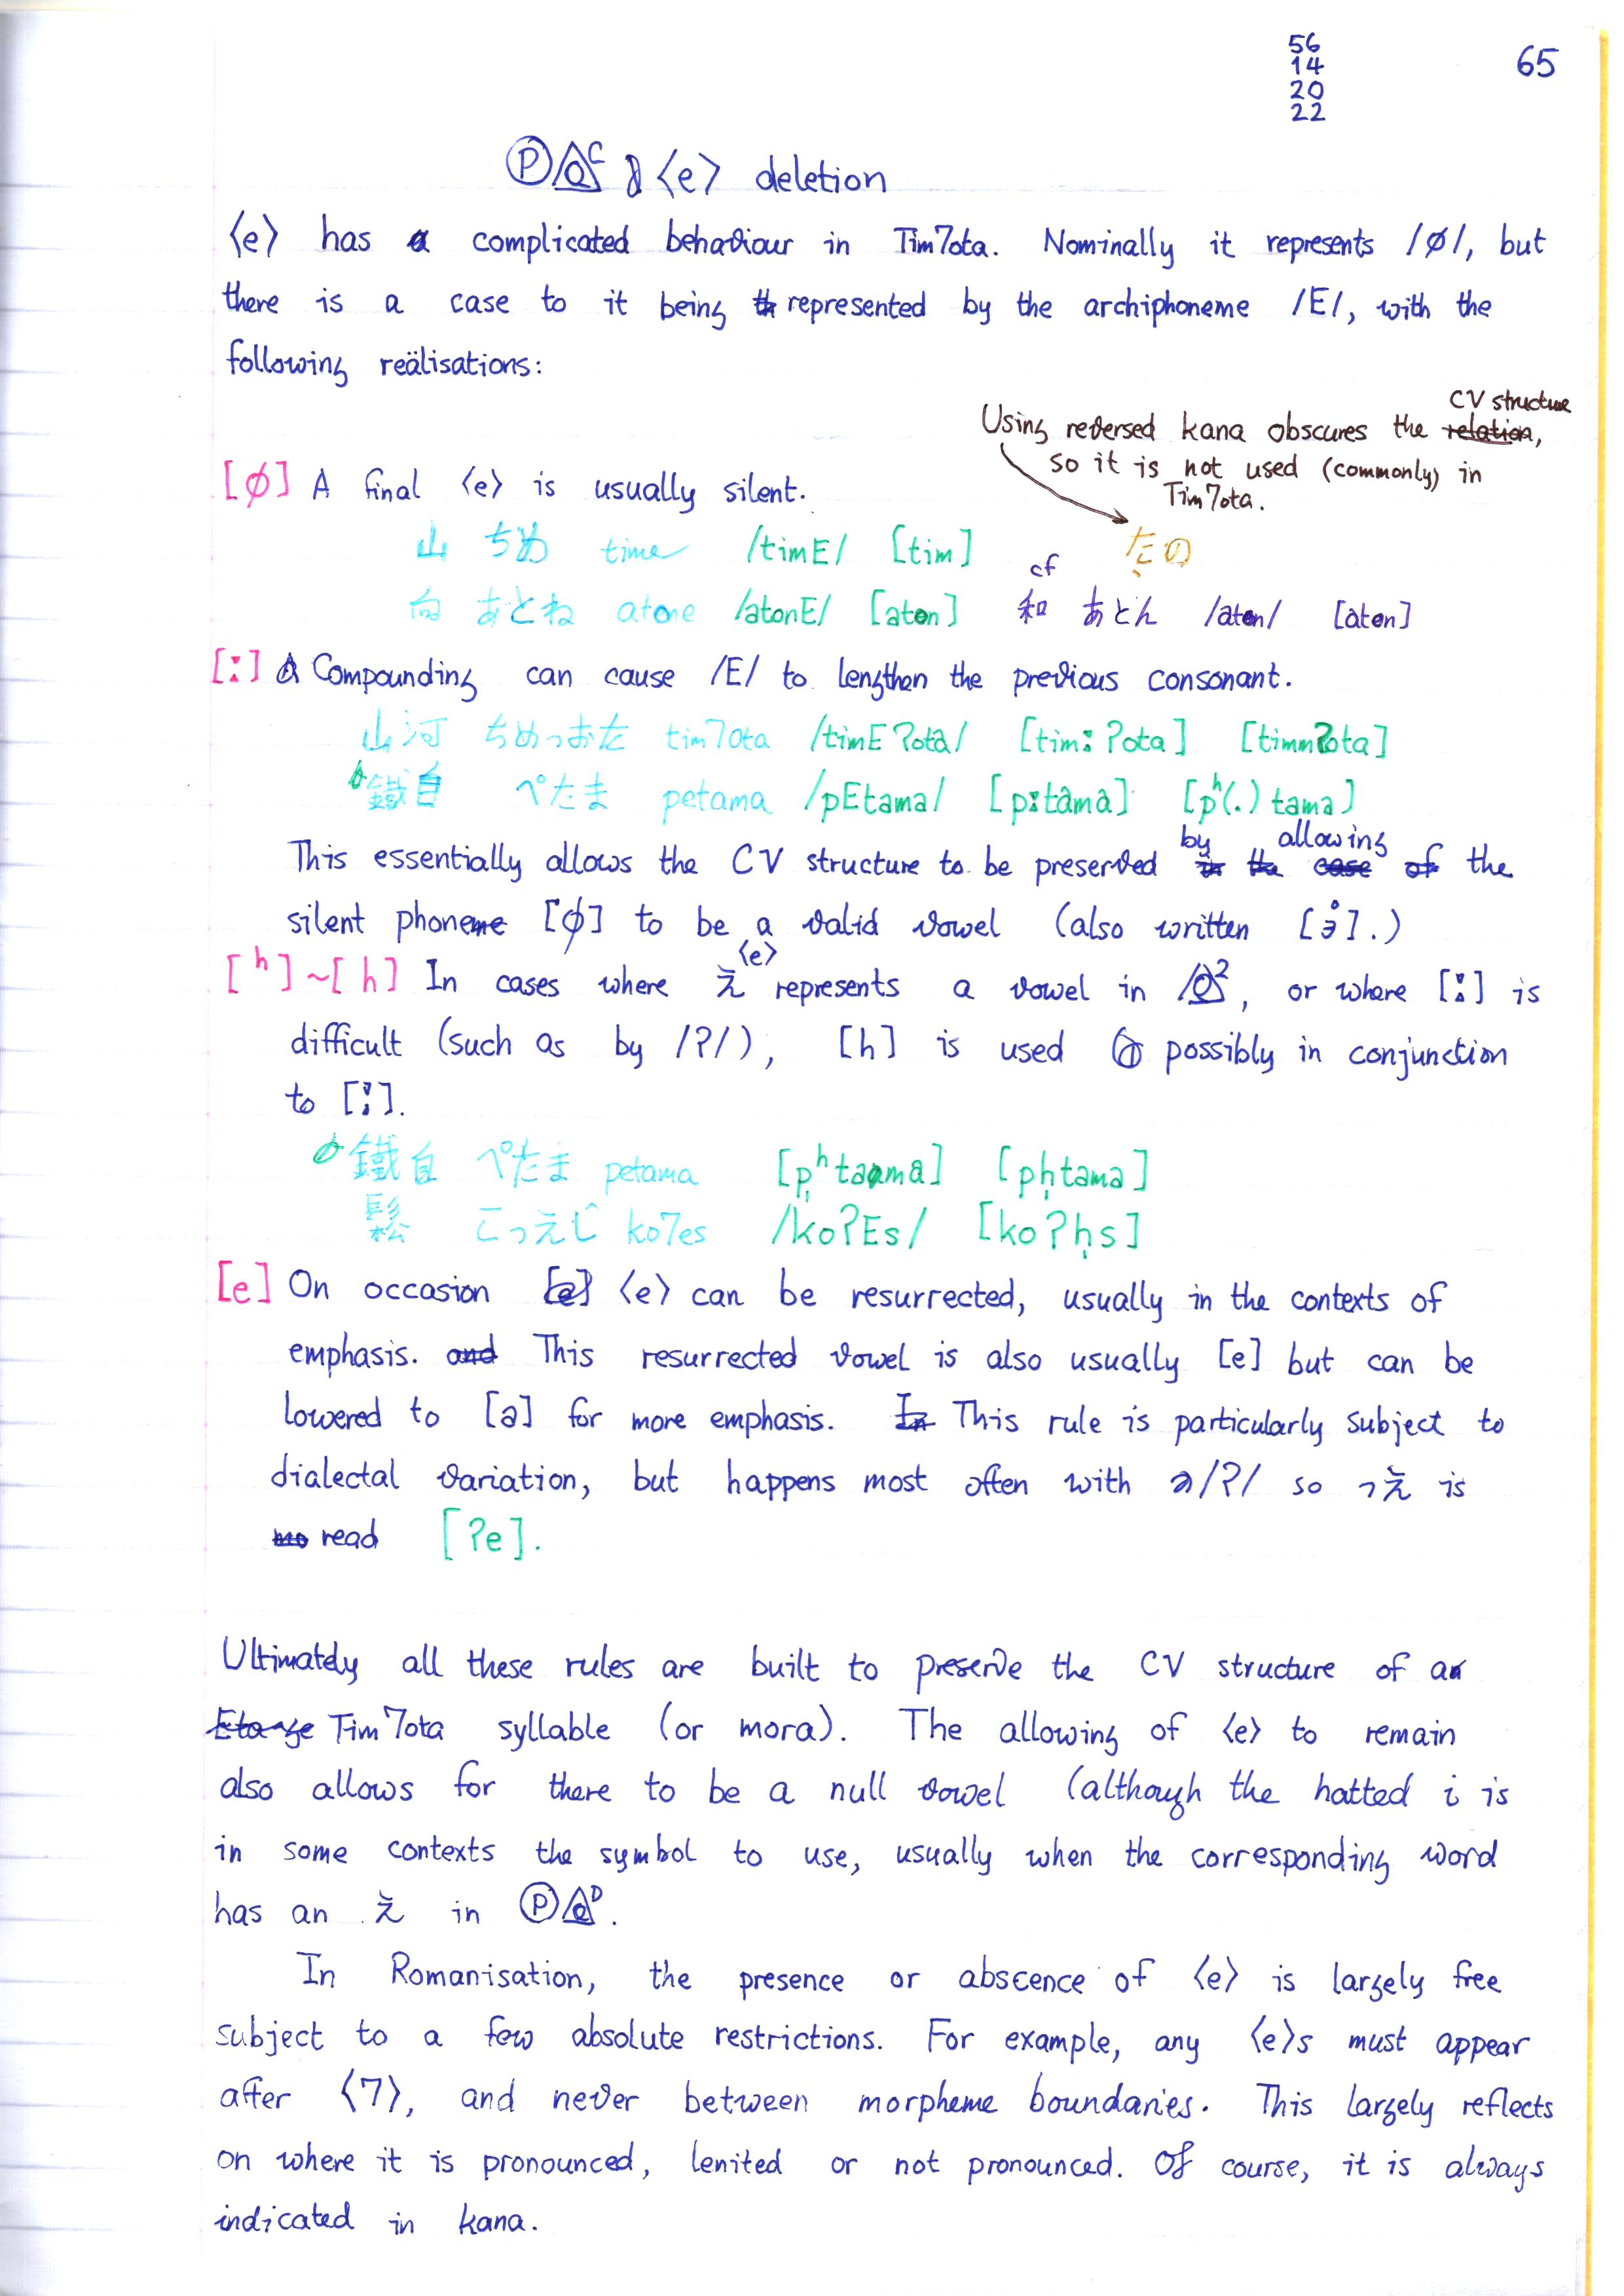 56
14
20
22
65
⟨e⟩ deletion
⟨e⟩ has a complicated behaviour in Tim7ota. Nominally it represents /ϕ/, but
there is a case to it being th represented by the archiphoneme /E/, with the
following reälisations:
Using reversed kana obscures the relation, CV structure
so it is not used (commonly) in
Tim7ota.
[ϕ] A final ⟨e⟩ is usually silent.
山 ちめ time /timE/ [tim]
向 あとね atone /atonE/ [aton] cf 和 あとん /aton/ [aton]
[ː] Compounding can cause /E/ to lengthen the previous consonant.
山河 ちめっおた tim7ota /timEʔota/ [timːʔota] [timmʔota]
鐵自 ぺたま petama /pEtama/ [pːtama] [pʰ(.)tama]
This essentially allows the CV structure to be preserved in the case of by allowing the
silent phoneme [ϕ] to be a valid vowel (also written [ə̊].)
[ʰ]~[h] In cases where え̌ ⟨e⟩ represents a vowel in , or where [ː] is
difficult (such as by /ʔ/), [h] is used possibly in conjunction
to [ː].
鐵自 ぺたま petama [p̩ʰtama] [ph̩tama]
鬆 こっえじ ko7es /koʔEs/ [koʔh̩s]
[e] On occasion [e] ⟨e⟩ can be resurrected, usually in the contexts of
emphasis. and This resurrected vowel is also usually [e] but can be
lowered to [a] for more emphasis. In This rule is particularly subject to
dialectal variation, but happens most often with /ʔ/ so っえ̌ is
read [ʔe].
Ultimately all these rules are built to preserve the CV structure of a
Tim7ota syllable (or mora). The allowing of ⟨e⟩ to remain
also allows for there to be a null vowel (although the hatted i is
in some contexts the symbol to use, usually when the corresponding word
has an え̌ in ⓅD.
In Romanisation, the presence or abscence of ⟨e⟩ is largely free
subject to a few absolute restrictions. For example, any ⟨e⟩s must appear
after ⟨7⟩, and never between morpheme boundaries. This largely reflects
on where it is pronounced, lenited or not pronounced. Of course, it is always
indicated in kana.